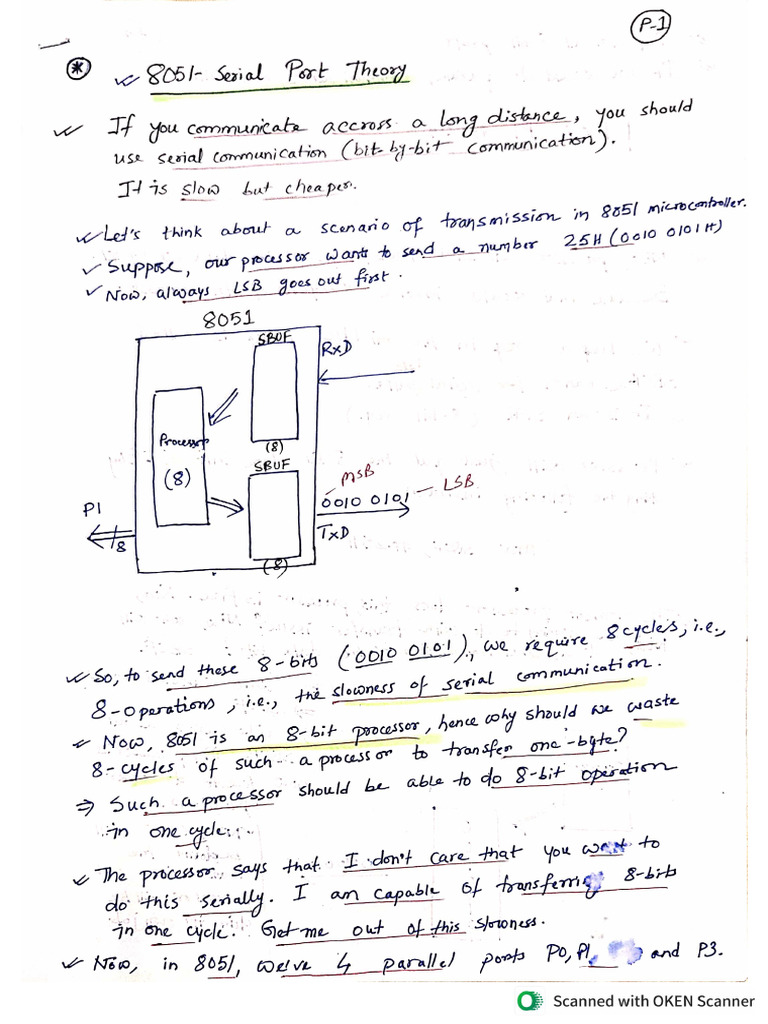 P-1
* ✓ 8051- Serial Port Theory
✓ If you communicate accross a long distance, you should
use serial communication (bit-by-bit communication).
It is slow but cheaper.
✓ Let's think about a scenario of transmission in 8051 microcontroller.
✓ Suppose, our processor wants to send a number 25H (0010 0101H)
✓ Now, always LSB goes out first.
8051
SBUF
RxD
Processor
(8)
(8)
SBUF
MSB
LSB
0010 0101
P1
8
TxD
(8)
✓ So, to send these 8-bits (0010 0101), we require 8 cycles, i.e.,
8-operations, i.e., the slowness of serial communication.
✓ Now, 8051 is an 8-bit processor, hence why should we waste
8-cycles of such a processor to transfer one-byte?
⇒ Such a processor should be able to do 8-bit operation
in one cycle.
✓ The processor says that I don't care that you want to
do this serially. I am capable of transferring 8-bits
in one cycle. Get me out of this slowness.
✓ Now, in 8051, we've 4 parallel ports P0, P1, and P3.
Scanned with OKEN Scanner